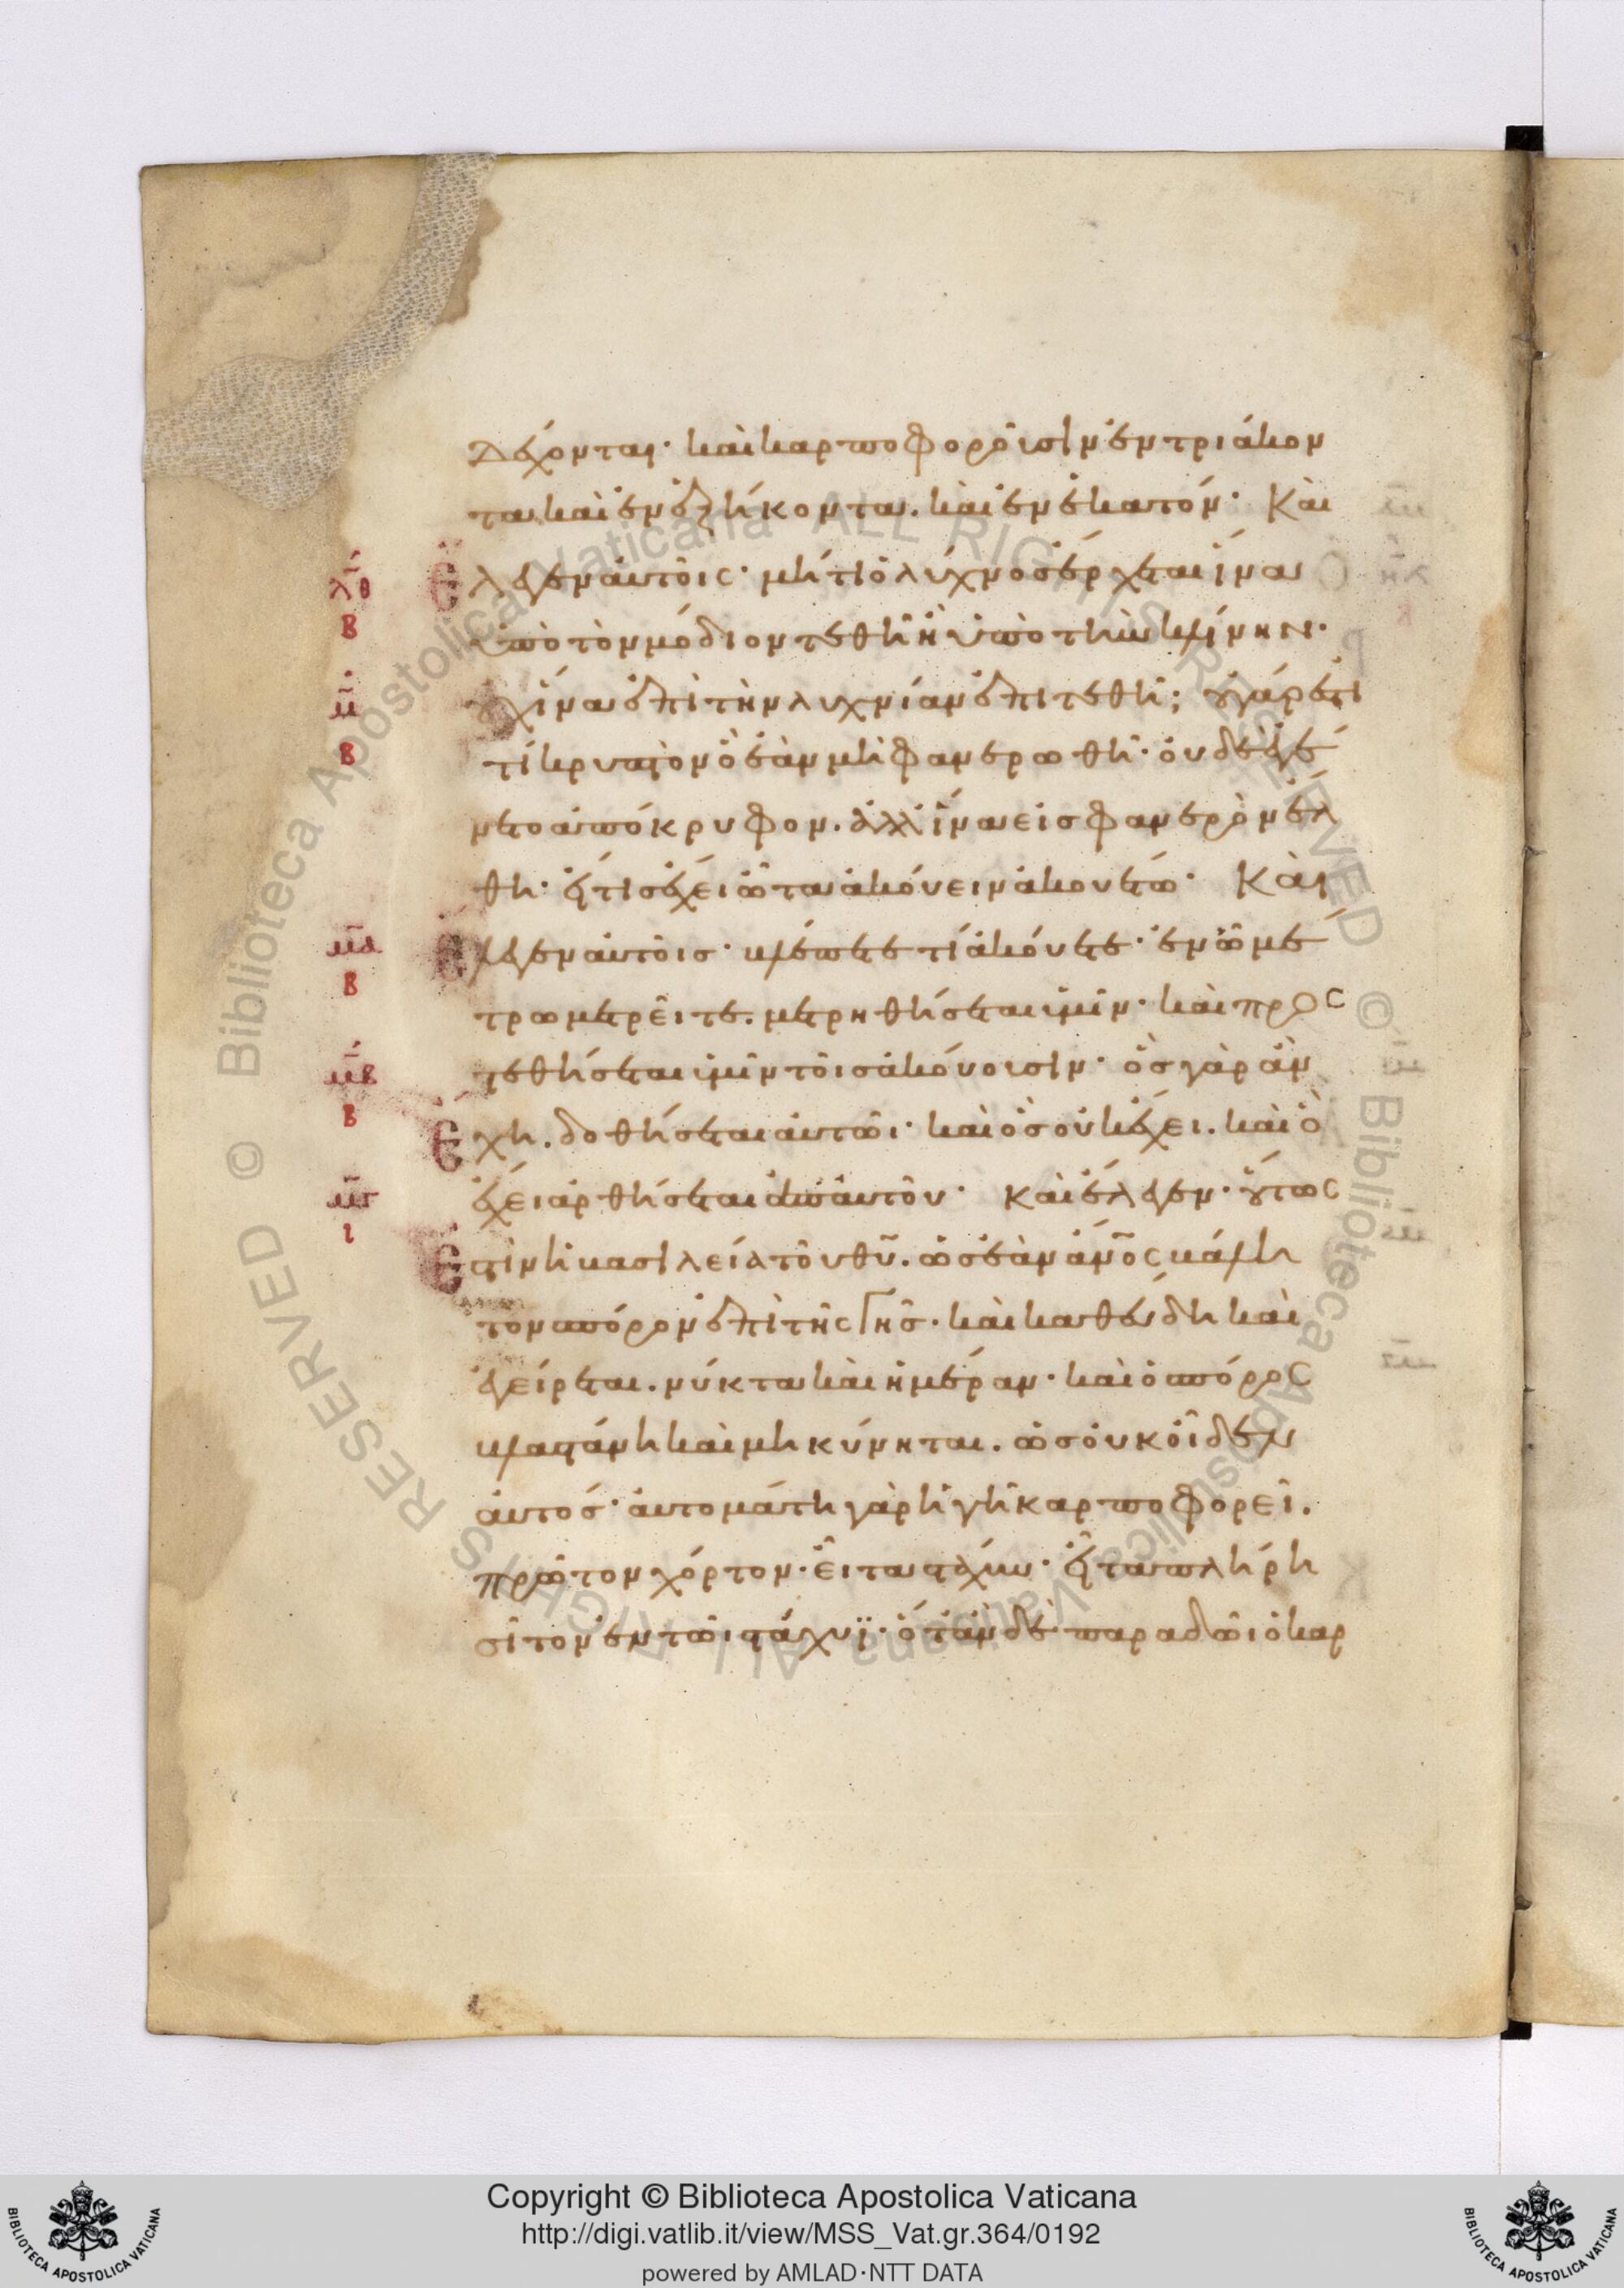 δέχονται· καὶ καρποφοροῦσιν ἐν τριάκον
τα καὶ ἐν ἑξήκοντα. καὶ ἐν ἑκατόν· Καὶ
λθ ἔλεγεν αὐτοῖς· μήτι ὁ λύχνος ἔρχεται ἵνα
β ὑπὸ τὸν μόδιον τεθῆ ἢ ὑπὸ τὴν κλίνην·
μ οὐχ ἵνα ἐπὶ τὴν λυχνίαν ἐπιτεθῆ; οὐ γάρ ἐστι
β τί κρυπτὸν ὃ ἐὰν μὴ φανερωθῆ· οὐδὲ ἐγέ
νετο ἀπόκρυφον. ἀλλ' ἵνα εἰς φανερὸν ἔλ
θη· εἴ τις ἔχει ὦτα ἀκούειν ἀκουέτω· Καὶ
μα ἔλεγεν αὐτοῖς· βλέπετε τί ἀκούετε· ἐν ᾧ μέ
β τρω μετρεῖτε. μετρηθήσεται ὑμῖν· καὶ προσ
μβ τεθήσεται ὑμῖν τοῖς ἀκούουσιν· ὃς γὰρ ἂν
β ἔχη. δοθήσεται αὐτῶι· καὶ ὃς οὐκ ἔχει. καὶ ὃ
μγ ἔχει ἀρθήσεται ἀπ' αὐτοῦ· Καὶ ἔλεγεν· οὕτως
ι ἐστὶν ἡ βασιλεία τοῦ θυ. ὡς ἐὰν ἄνος βάλη
τὸν σπόρον ἐπὶ τῆς γῆς. καὶ καθεύδη καὶ
ἐγείρεται. νύκτα καὶ ἡμέραν· καὶ ὁ σπόρος
βλαστάνη καὶ μηκύνηται. ὡς οὐκ οἶδεν
αὐτός· αὐτομάτη γὰρ ἡ γῆ καρποφορεῖ.
πρῶτον χόρτον· εἶτα στάχυν· εἶτα πλήρη
σῖτον ἐν τῶι στάχυϊ· ὅταν δὲ παραδῶι ὁ καρ
Copyright © Biblioteca Apostolica Vaticana
http://digi.vatlib.it/view/MSS_Vat.gr.364/0192
powered by AMLAD·NTT DATA